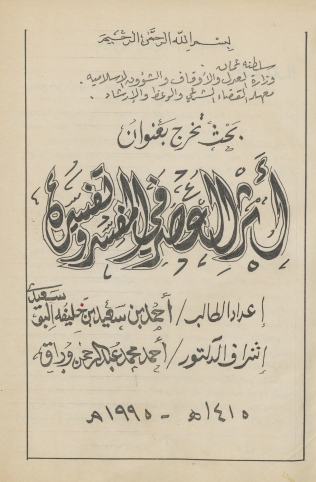 بسم الله الرحمن الرحيم
سلطنة عمان
وزارة العدل والأوقاف والشؤون الإسلامية.
معهد القضاء الشرعي والوعظ والإرشاد.
بحث تخرج بعنوان
أثر العصر في المفسر وتفسيره
إعداد الطالب/ أحمد بن سعيد بن خليفه البوسعيدي
إشراف الدكتور/ أحمد محمد عبدالرحمن وراق
١٤١٥هـ - ١٩٩٥م